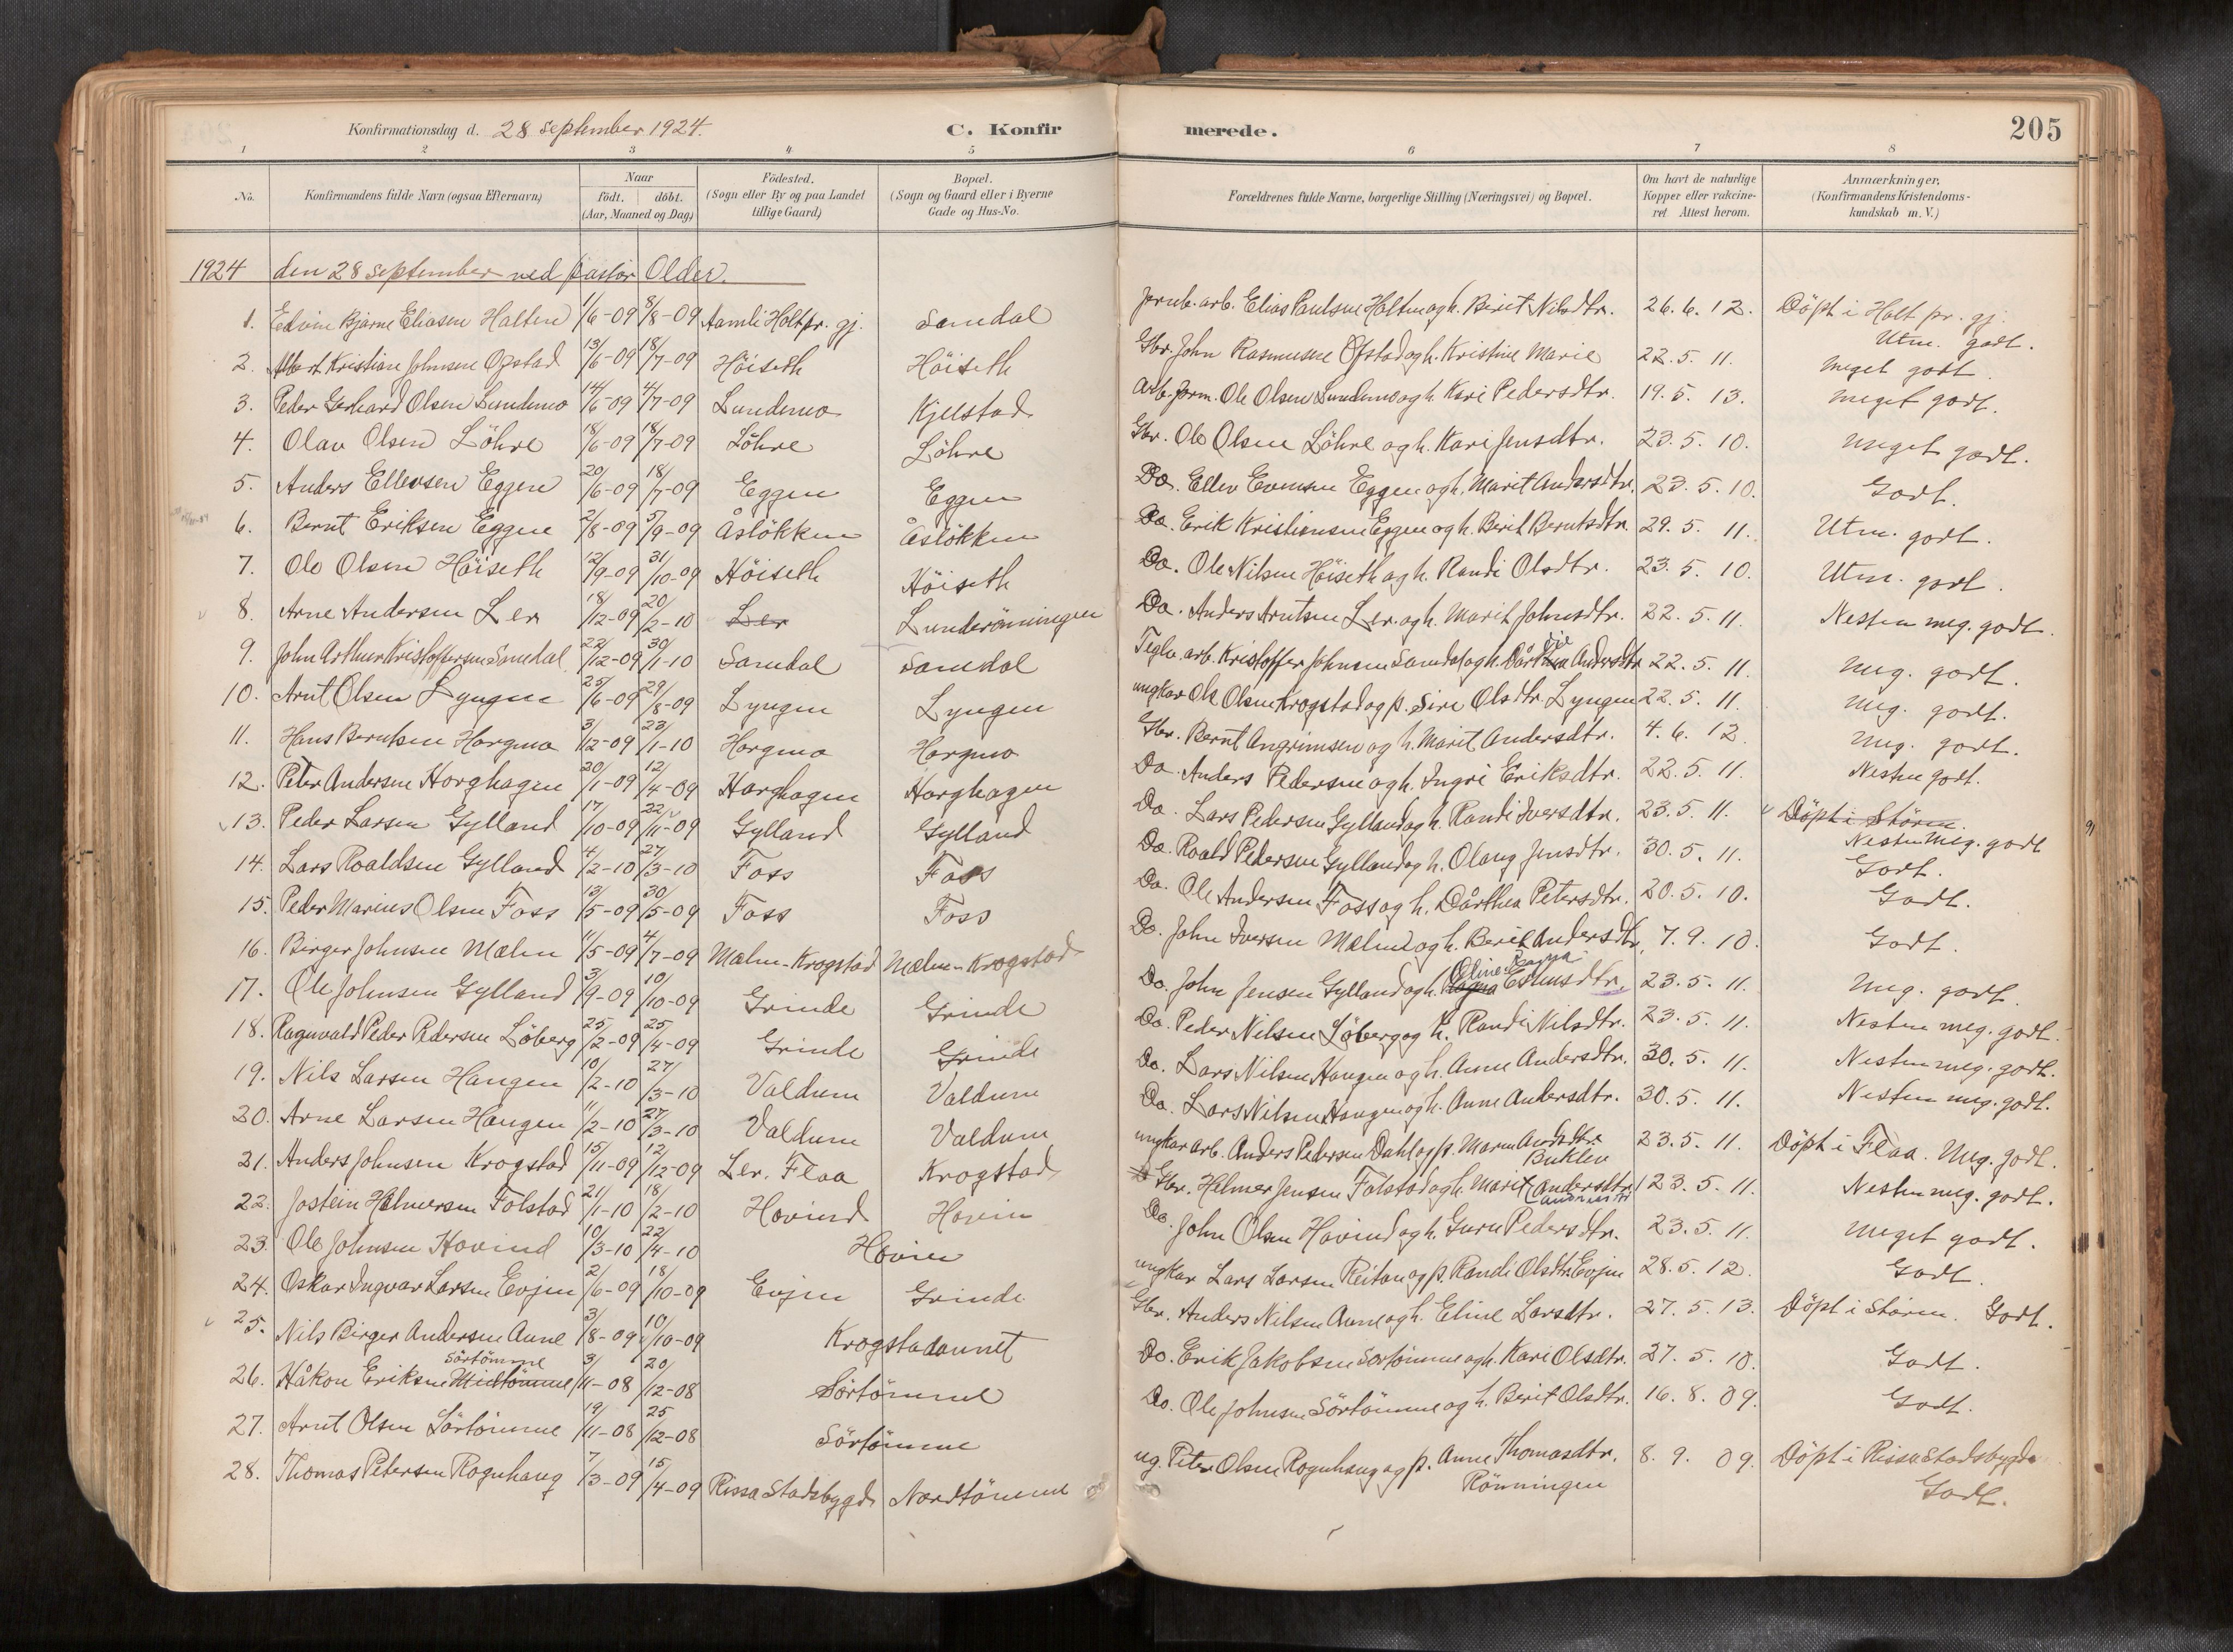 Konfirmationsdag d. 28 september 1924. C. Konfirmerede. 205
1 2 3 4 5 6 7 8
No. Konfirmandens fulde Navn (ogsaa Efternavn) Naar födt. döbt. (Aar, Maaned og Dag) Födested. (Sogn eller By og paa Landet tillige Gaard) Bopæl. (Sogn og Gaard eller i Byerne Gade og Hus-No. Forældrenes fulde Navne, borgerlige Stilling (Næringsvei) og Bopæl. Om havt de naturlige Kopper eller vakcineret Attest herom. Anmærkninger, (Konfirmandens Kristendomskundskab m. V.)
1924 den 28 september ved pastor Older.
1. Edvin Bjarne Eliasen Halten 1/6-09 8/8-09 Aamli Holt pr. gj. Samdal Jernb. arb. Elias Paulsen Halten og h. Berit Nilsdtr. 26. 6. 12. Döpt i Holt pr. gj. Utm. godt.
2. Albert Kristian Johnsen Ofstad 13/6-09 18/7-09 Höiseth Höiseth Gbr. John Rasmussen Ofstad og h. Kristine Marie 22. 5. 11. Meget godt.
3. Peder Gerhard Olsen Lundemo 14/6-09 4/7-09 Lundemo Kjelstad Arb. form. Ole Olsen Lundemo og h. Kari Pedersdtr. 19. 5. 13. Meget godt.
4. Olav Olsen Löhre 18/6-09 18/7-09 Löhre Löhre Gbr. Ole Olsen Löhre og h. Kari Jensdtr. 23. 5. 10. Meget godt.
5. Anders Ellevsen Eggen 20/6-09 18/7-09 Eggen Eggen Do. Ellev Evensen Eggen og h. Marit Andersdtr. 23. 5. 10. Godt.
6. Bernt Eriksen Eggen 2/8-09 5/9-09 Åslökken Åslökken Do. Erik Kristiansen Eggen og h. Berit Berntsdtr. 29. 5. 11. Utm. godt.
7. Ole Olsen Höiseth 12/9-09 31/10-09 Höiseth Höiseth Do. Ole Nilsen Höiseth og h. Randi Olsdtr. 23. 5. 10. Utm. godt.
8. Arne Andersen Ler 18/12-09 20/2-10 Ler Lunderönningen Do. Anders Arntsen Ler og h. Marit Johnsdtr. 22. 5. 11. Nesten meg. godt.
9. John Arthur Kristoffersen Samdal 22/12-09 30/1-10 Samdal Samdal Teglv. arb. Kristoffer Johnsen Samdal og h. Dårthea Andersdtr 22. 5. 11. Meg. godt.
10. Arnt Olsen Lyngen 25/6-09 29/8-09 Lyngen Lyngen ungkar Ole Olsen Krogstad og p. Siri Olsdtr. Lyngen 22. 5. 11. Meg. godt.
11. Hans Berntsen Horgmo 3/12-09 23/1-10 Horgmo Horgmo Gbr. Bernt Angrimsen og h. Marit Andersdtr. 4. 6. 12. Meg. godt.
12. Peter Andersen Horghagen 20/1-09 12/4-09 Horghagen Horghagen Do. Anders Pedersen og h. Ingri Eriksdtr. 22. 5. 11. Nesten godt.
13. Peder Larsen Gylland 17/10-09 22/11-09 Gylland Gylland Do. Lars Pedersen Gylland og h. Randi Iversdtr. 23. 5. 11. Döpt i Stören. Nesten meg. godt
14. Lars Roaldsen Gylland 4/2-10 27/3-10 Foss Foss Do. Roald Pedersen Gylland og h. Olaug Jensdtr. 30. 5. 11. Godt.
15. Peder Marius Olsen Foss 13/5-09 30/5-09 Foss Foss Do. Ole Andersen Foss og h. Dårthea Petersdtr. 20. 5. 10. Godt.
16. Birger Johnsen Mælen 11/5-09 4/7-09 Mælen-Krogstad Mælen-Krogstad Do. John Iversen Mælen og h. Berit Andersdtr. 7. 9. 10. Godt.
17. Ole Johnsen Gylland 3/9-09 10/10-09 Grinde Grinde Do. John Jensen Gylland og h. Ragna Oline Ragna Estensdtr. 23. 5. 11. Meg. godt.
18. Ragnvald Peder Pedersen Löberg 25/2-09 25/4-09 Grinde Grinde Do. Peder Nilsen Löberg og h. Randi Nilsdtr. 23. 5. 11. Nesten meg. godt.
19. Nils Larsen Haugen 10/2-10 27/3-10 Valdum Valdum Do. Lars Nilsen Haugen og h. Anne Andersdtr. 30. 5. 11. Nesten meg. godt.
20. Arne Larsen Haugen 11/2-10 27/3-10 Valdum Valdum Do. Lars Nilsen Haugen og h. Anne Andersdtr. 30. 5. 11. Nesten meg. godt.
21. Anders Johnsen Krogstad 15/11-09 12/12-09 Ler. Flaa Krogstad ungkar arb. Anders Pedersen Dahl og p. Maren Andsdtr. Buklev 23. 5. 11. Döpt i Flaa. Meg. godt.
22. Jostein Helmersen Folstad 21/1-10 18/2-10 Hovind Hovin Gbr. Helmer Jensen Folstad og h. Marit Andersdtr. 23. 5. 11. Nesten meg. godt.
23. Ole Johnsen Hovind 10/3-10 22/4-10 Hovin Do. John Olsen Hovind og h. Guru Pedersdtr. 23. 5. 11. Meget godt.
24. Oskar Ingvar Larsen Evjen 2/6-09 18/10-09 Evjen Grinde ungkar Lars Larsen Reitan og p. Randi Olsdtr. Evjen 28. 5. 12. Godt.
25. Nils Birger Andersen Aune 3/8-09 10/10-09 Krogstadaunet Gbr. Anders Nilsen Aune og h. Eline Larsdtr. 27. 5. 13. Döpt i Stören. Godt.
26. Håkon Eriksen Midtömme Sörtömme 3/11-08 20/12-08 Sörtömme Do. Erik Jakobsen Sörtömme og h. Kari Olsdtr. 27. 5. 10. Godt.
27. Arnt Olsen Sörtömme 19/11-08 25/12-08 Sörtömme Do. Ole Johnsen Sörtömme og h. Berit Olsdtr. 16. 8. 09. Godt.
28. Thomas Petersen Rognhaug 7/3-09 15/4-09 Rissa Stadsbygd Nordtömme ug. Peter Olsen Rognhaug og p. Anne Thomasdtr. Rönningen 8. 9. 09. Döpt i Rissa Stadsbygd Godt.